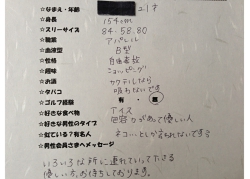 ☆なまえ・年齢 21才
☆身長 154cm
☆スリーサイズ 84.58.80
☆職業 アパレル
☆血液型 B型
☆性格 自由奔放
☆趣味 ショッピング
☆お酒 カクテルなら
☆タバコ 吸わないです
☆ゴルフ経験 有・無
☆好きな食べ物 アイス
☆好きな男性のタイプ 包容力があって優しい人
☆似ている?有名人 ネコっぽいとか言われないです
☆男性会員さまへメッセージ
いろいろな所に連れていってくださる
優しい方お待ちしております。